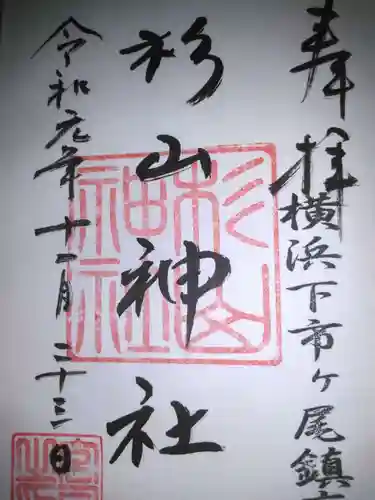 奉拝
横浜下市ヶ尾鎮
杉山神社
令和元年十一月二十三日
杉山
神社